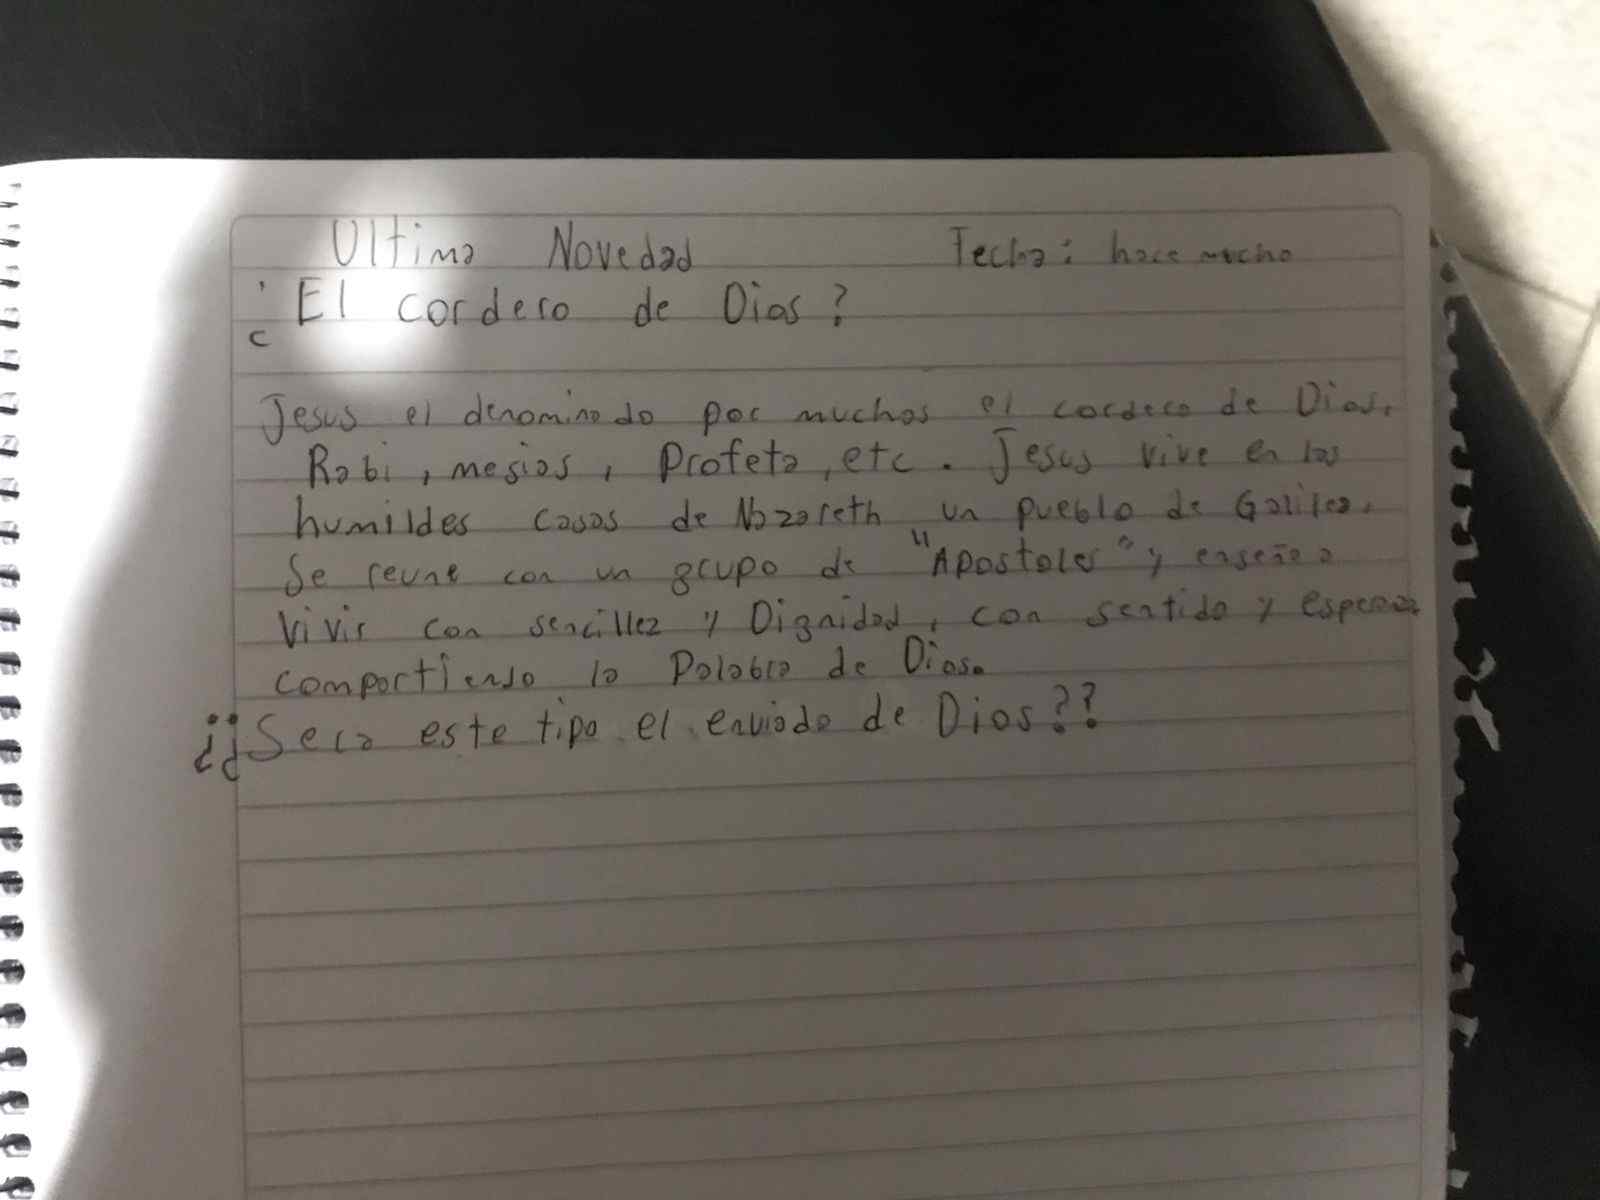 Ultima Novedad Fecha: hace mucho
¿El cordero de Dios?
Jesus el denominado por muchos el cordero de Dios,
Rabi, mesias, Profeta, etc. Jesus vive en las
humildes casas de Nazareth un pueblo de Galilea.
Se reune con un grupo de "Apostoles" y enseña
vivir con sencillez y Dignidad, con sentido y
compartiendo la Palabra de Dios.
¿¿Sera este tipo el enviado de Dios??